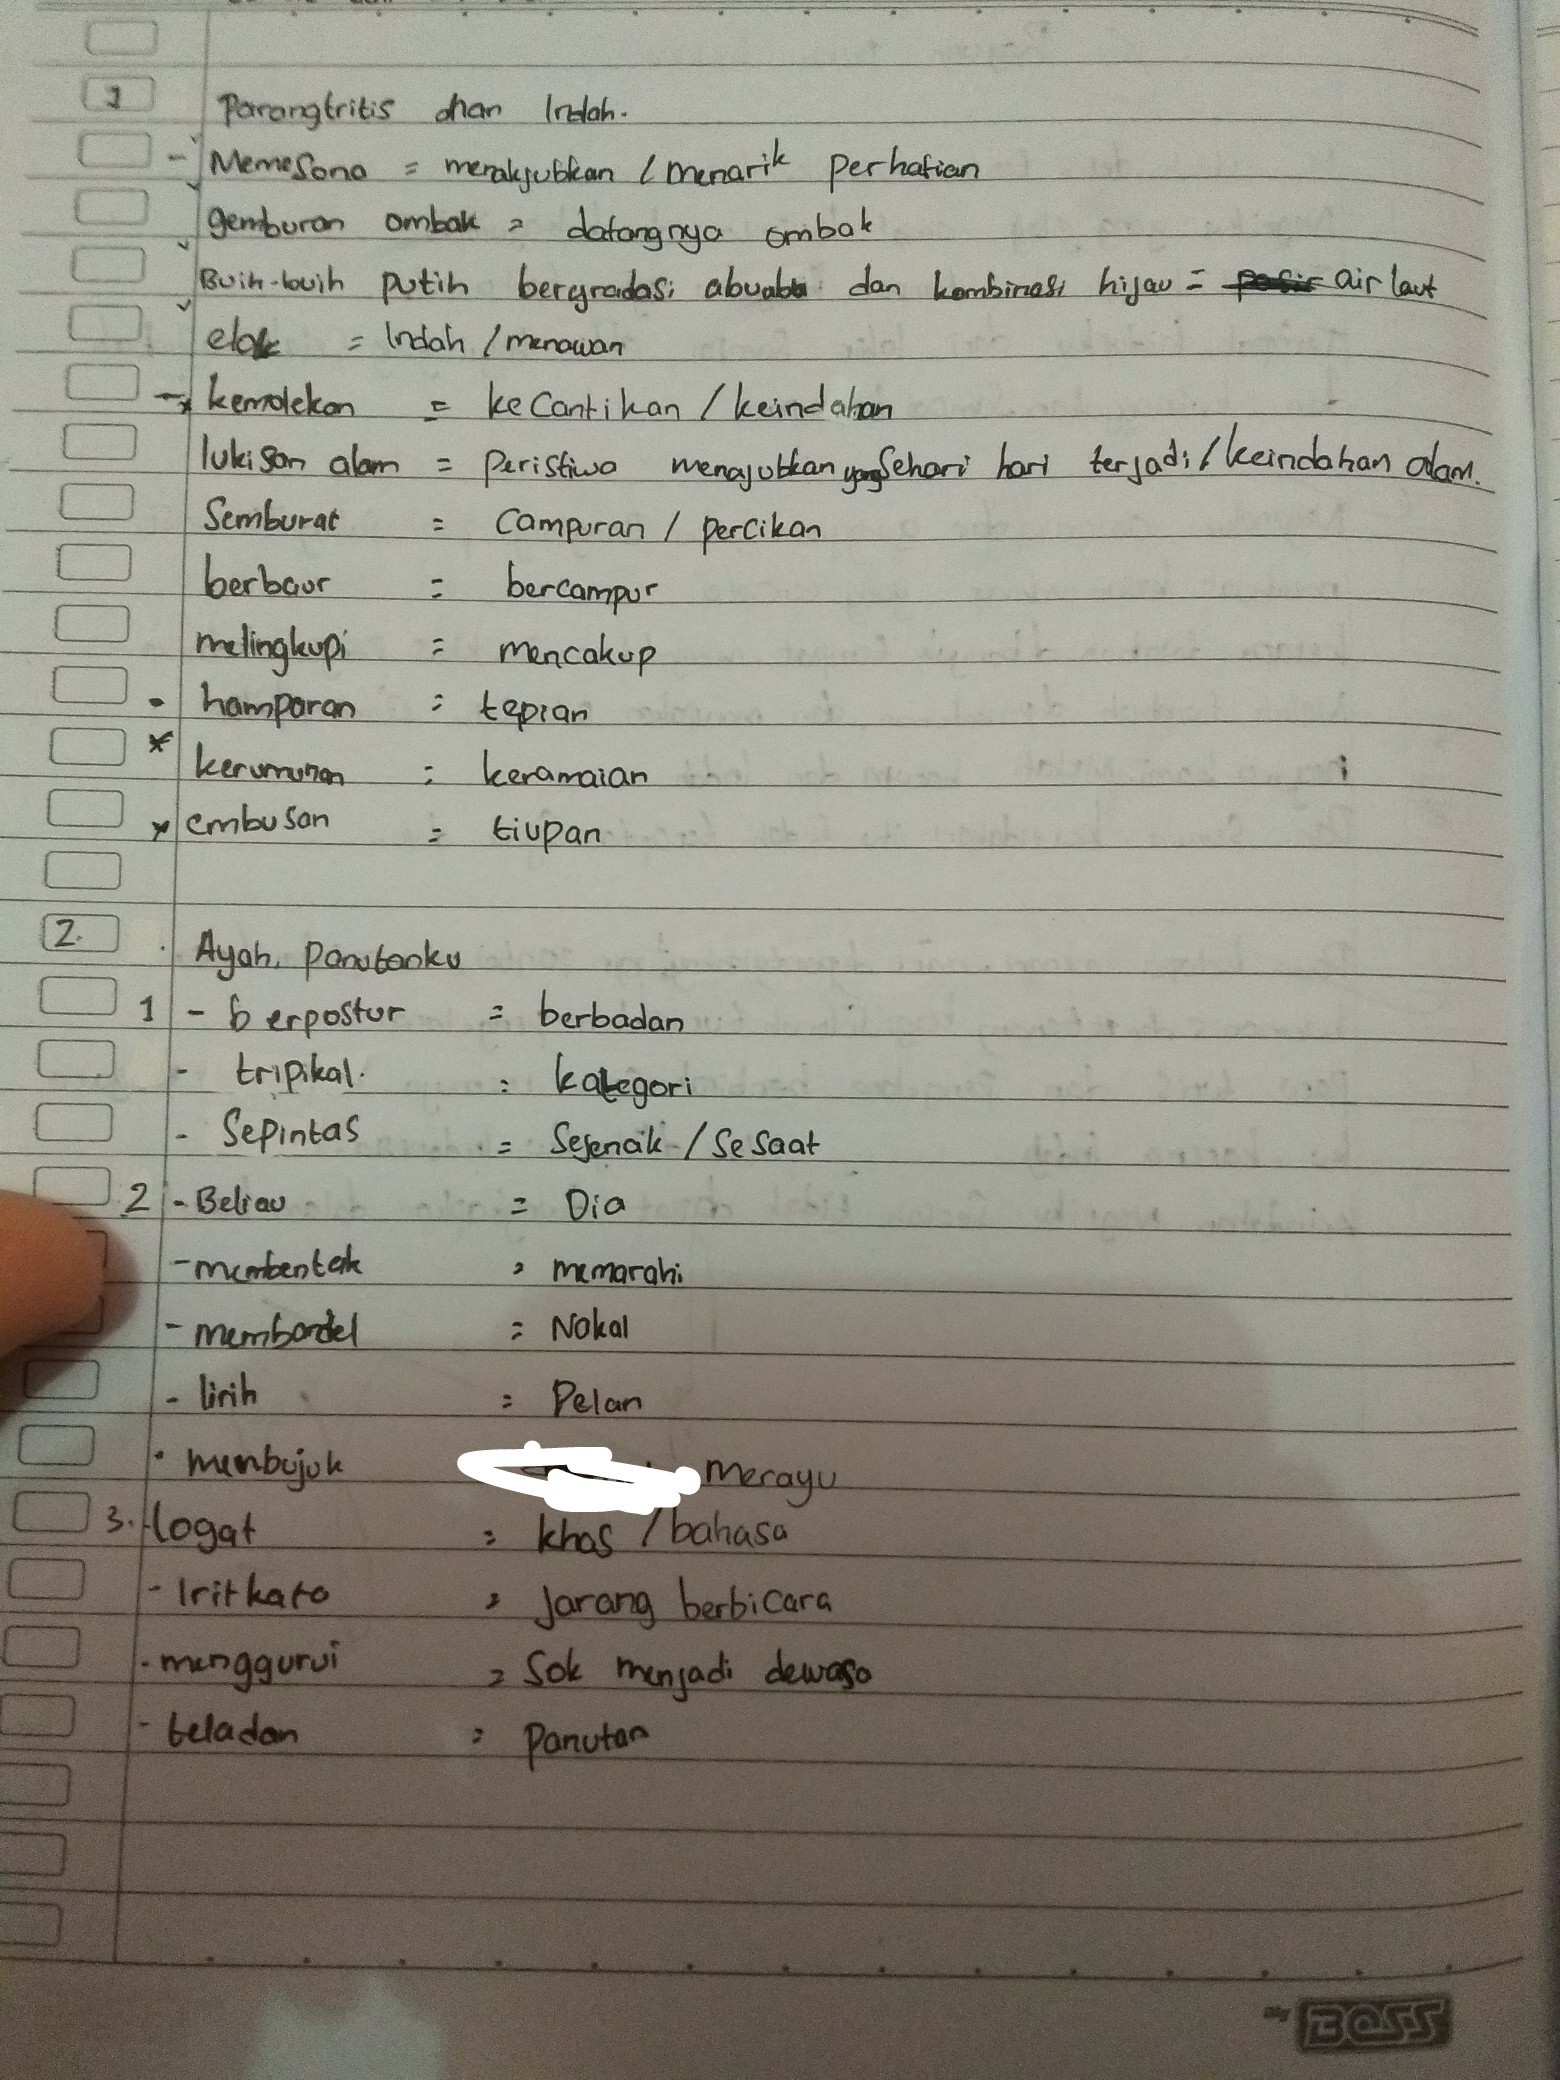 1 Parangtritis nan Indah.
- Memesona = menakjubkan / menarik perhatian
gemburan ombak = datangnya ombak
Buih-buih putih bergradasi abuabu dan kombinasi hijau = air laut
elok = Indah / menawan
kemolekan = kecantikan / keindahan
lukisan alam = peristiwa menajubkan yang sehari hari terjadi / keindahan alam.
Semburat = campuran / percikan
berbaur = bercampur
melingkupi = mencakup
hamparan = tepian
kerumunan = keramaian
embusan = tiupan
2. Ayah, panutanku
1 - berpostur = berbadan
- tripikal. = kategori
- Sepintas = Sejenak / Sesaat
2 - Beliau = Dia
- membentak = memarahi
- membandel = Nakal
- lirih = Pelan
- membujuk merayu
3. - logat = khas / bahasa
- Irit kata = Jarang berbicara
- menggurui = Sok menjadi dewasa
- teladan = panutan
By BOSS